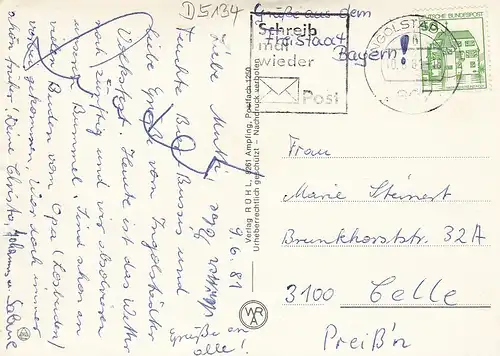 D5134
Grüße aus dem
Freistaat
Bayern!
Schreib
mal
wieder
Post
INGOLSTADT
DEUTSCHE BUNDESPOST
9.6.81
Liebe Mutti,
feuchte
Bussis und
liebe Grüße vom Ingolstädter
Volksfest. Heute ist das Wetter
noch zünftig und wir absolvieren
unseren Bummel. Sind schon an
vielen Buden vom Opa (Losbuden)
vorbei gekommen, war doch immer
schön früher! Deine Christa, Johannes u. Sabine
Grüße an
alle!
Verlag RÜHL, 8261 Ampfing, Postfach 1220
Urheberrechtlich geschützt - Nachdruck verboten
WRA
Frau
Marie Steinert
Brunkhorststr. 32A
3100 Celle
Preiß'n